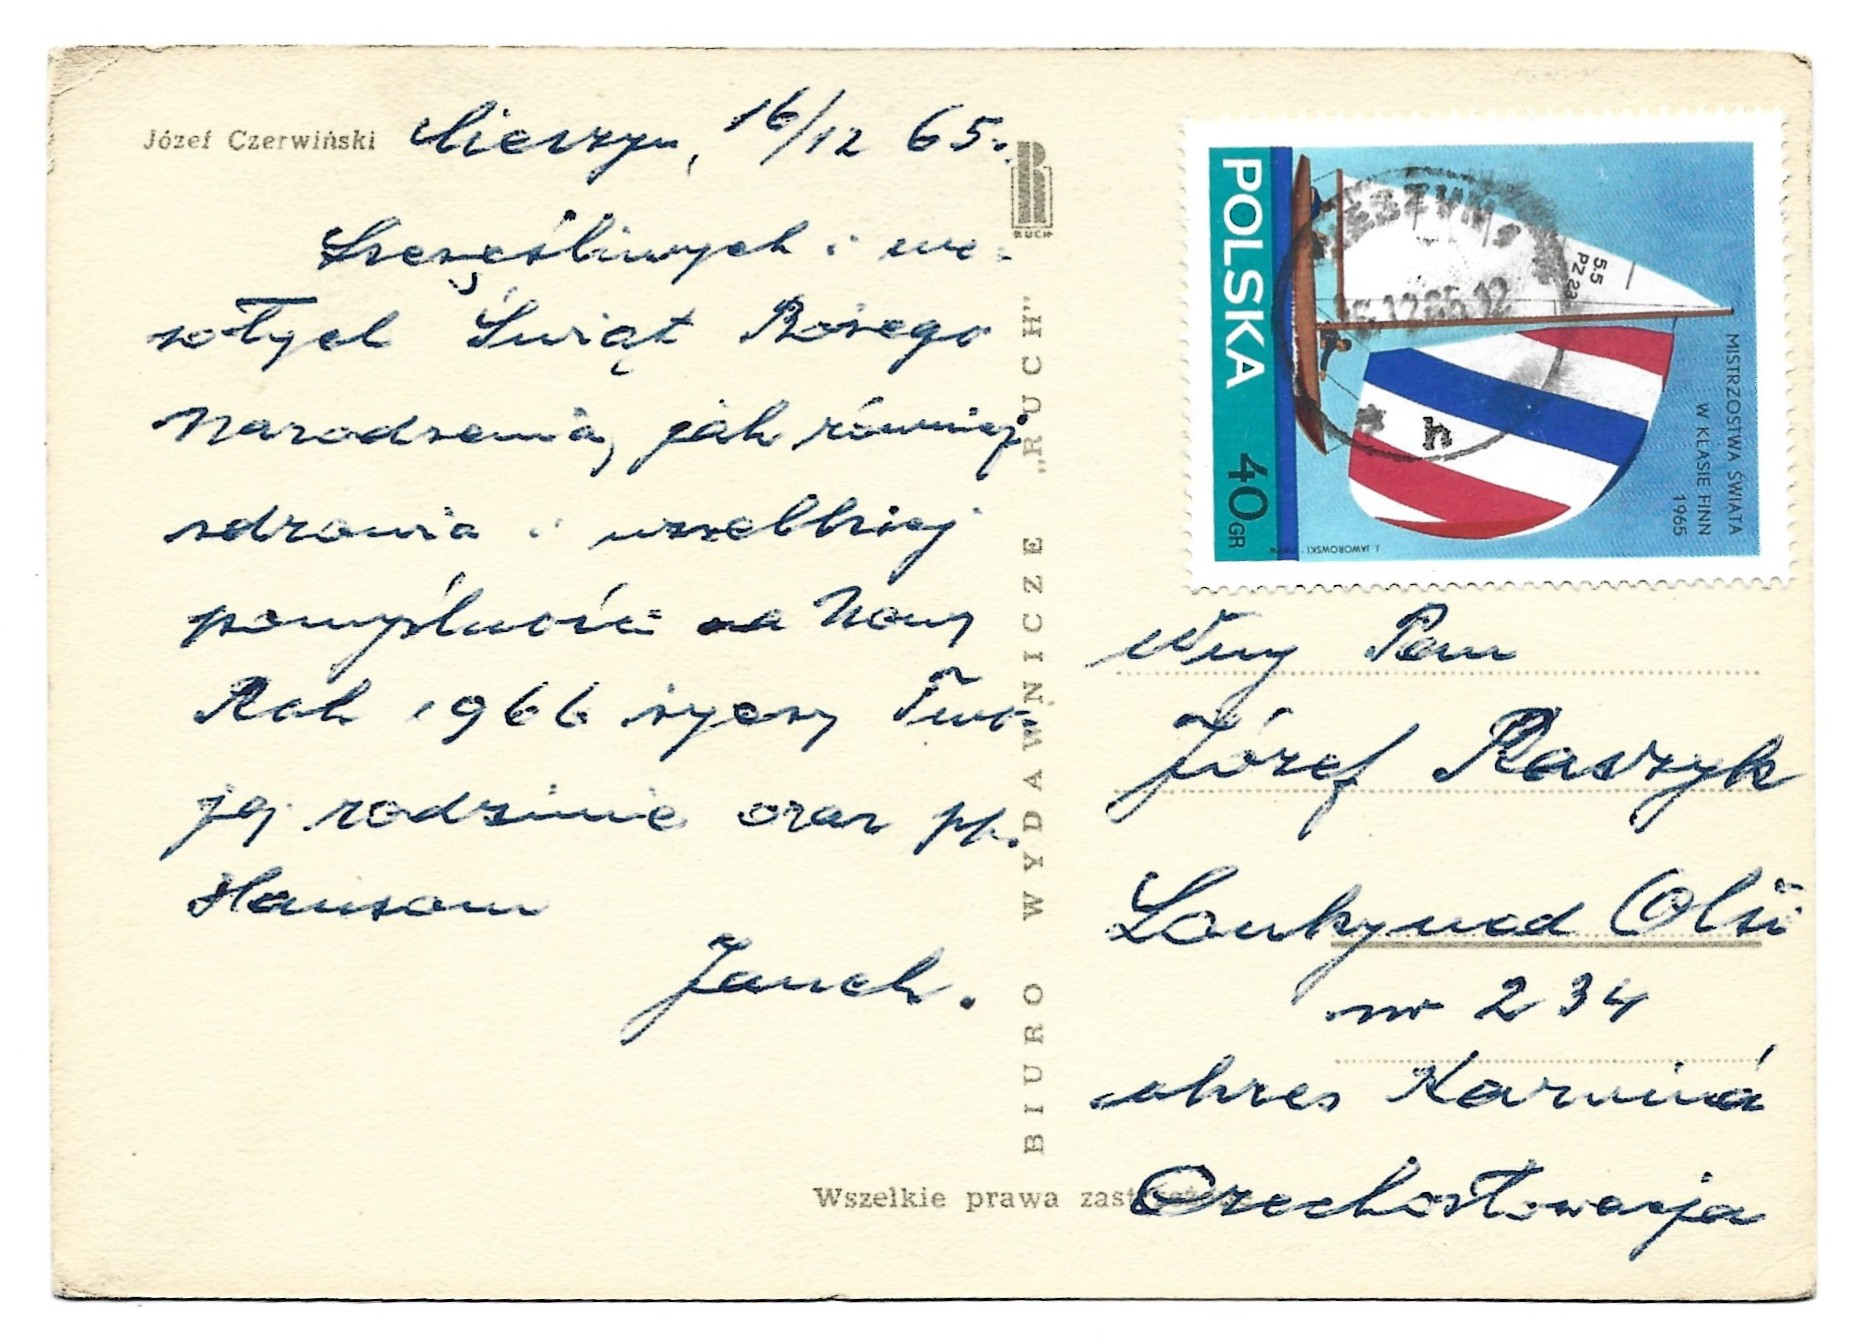 Józef Czerwiński
Cieszyn, 16/12 65.
Szczęśliwych i we-
sołych Świąt Bożego
Narodzenia, jak również
zdrowia i wszelkiej
pomyślności na Nowy
Rok 1966 życzy Two-
jej rodzinie oraz pp.
Hansom
Janek.
RUCH
BIURO WYDAWNICZE "RUCH"
Wszelkie prawa
POLSKA
40 GR
5.5
PZ 23
MISTRZOSTWA ŚWIATA
W KLASIE FINN
1965
J. JAWOROWSKI
Wny Pan
Józef Raszyk
Louky nad Olší
nr 234
okres Karviná
Czechosłowacja